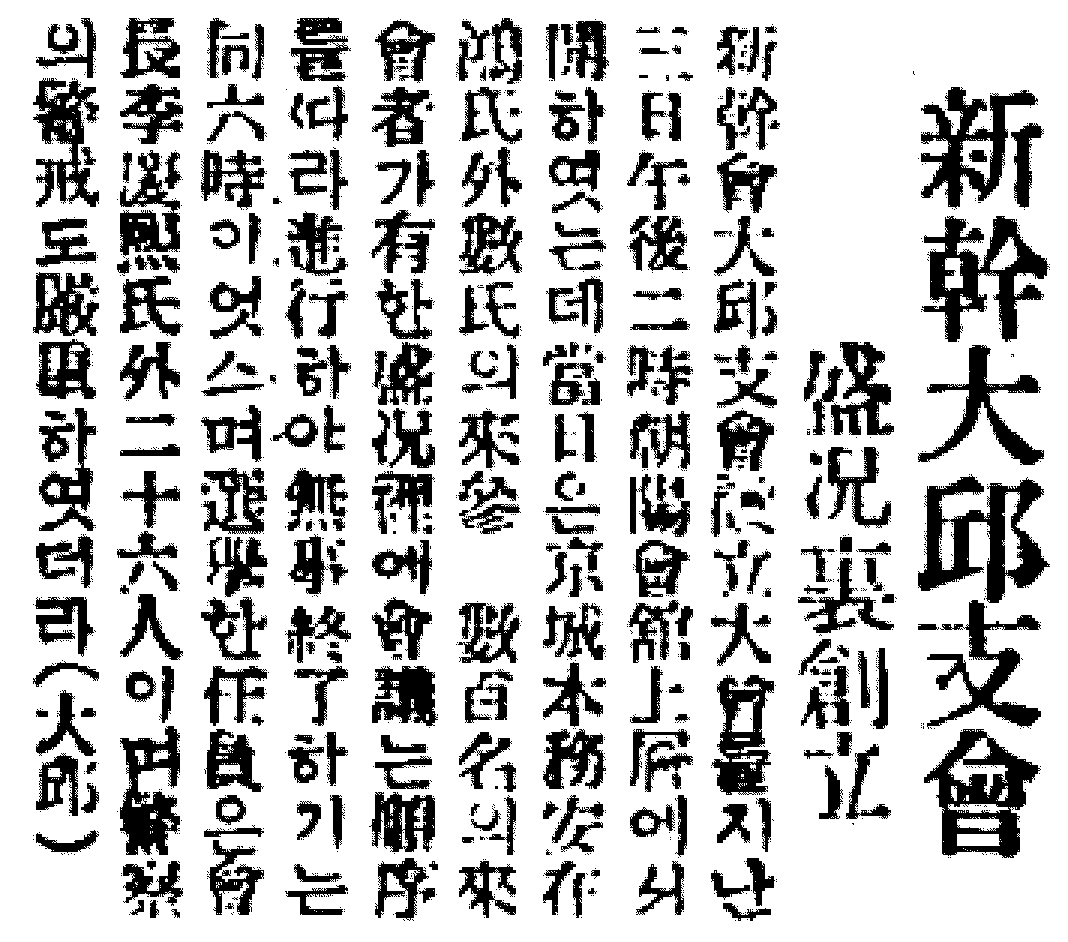 新幹大邱支會
盛况裏創立
新幹會大邱支會設立大會를지난
三日午後二時朝陽會舘上层에서
開하엿는데當日은京城本務安在
鴻氏外數氏의來參 數百名의來
會者가有한盛况裡에會議는順序
를다라進行하야無事終了하기는
同六時이엇스며選擧한任員은會
長李慶熙氏外二十六人이며警察
의警戒도嚴重하엿더라(大邱)